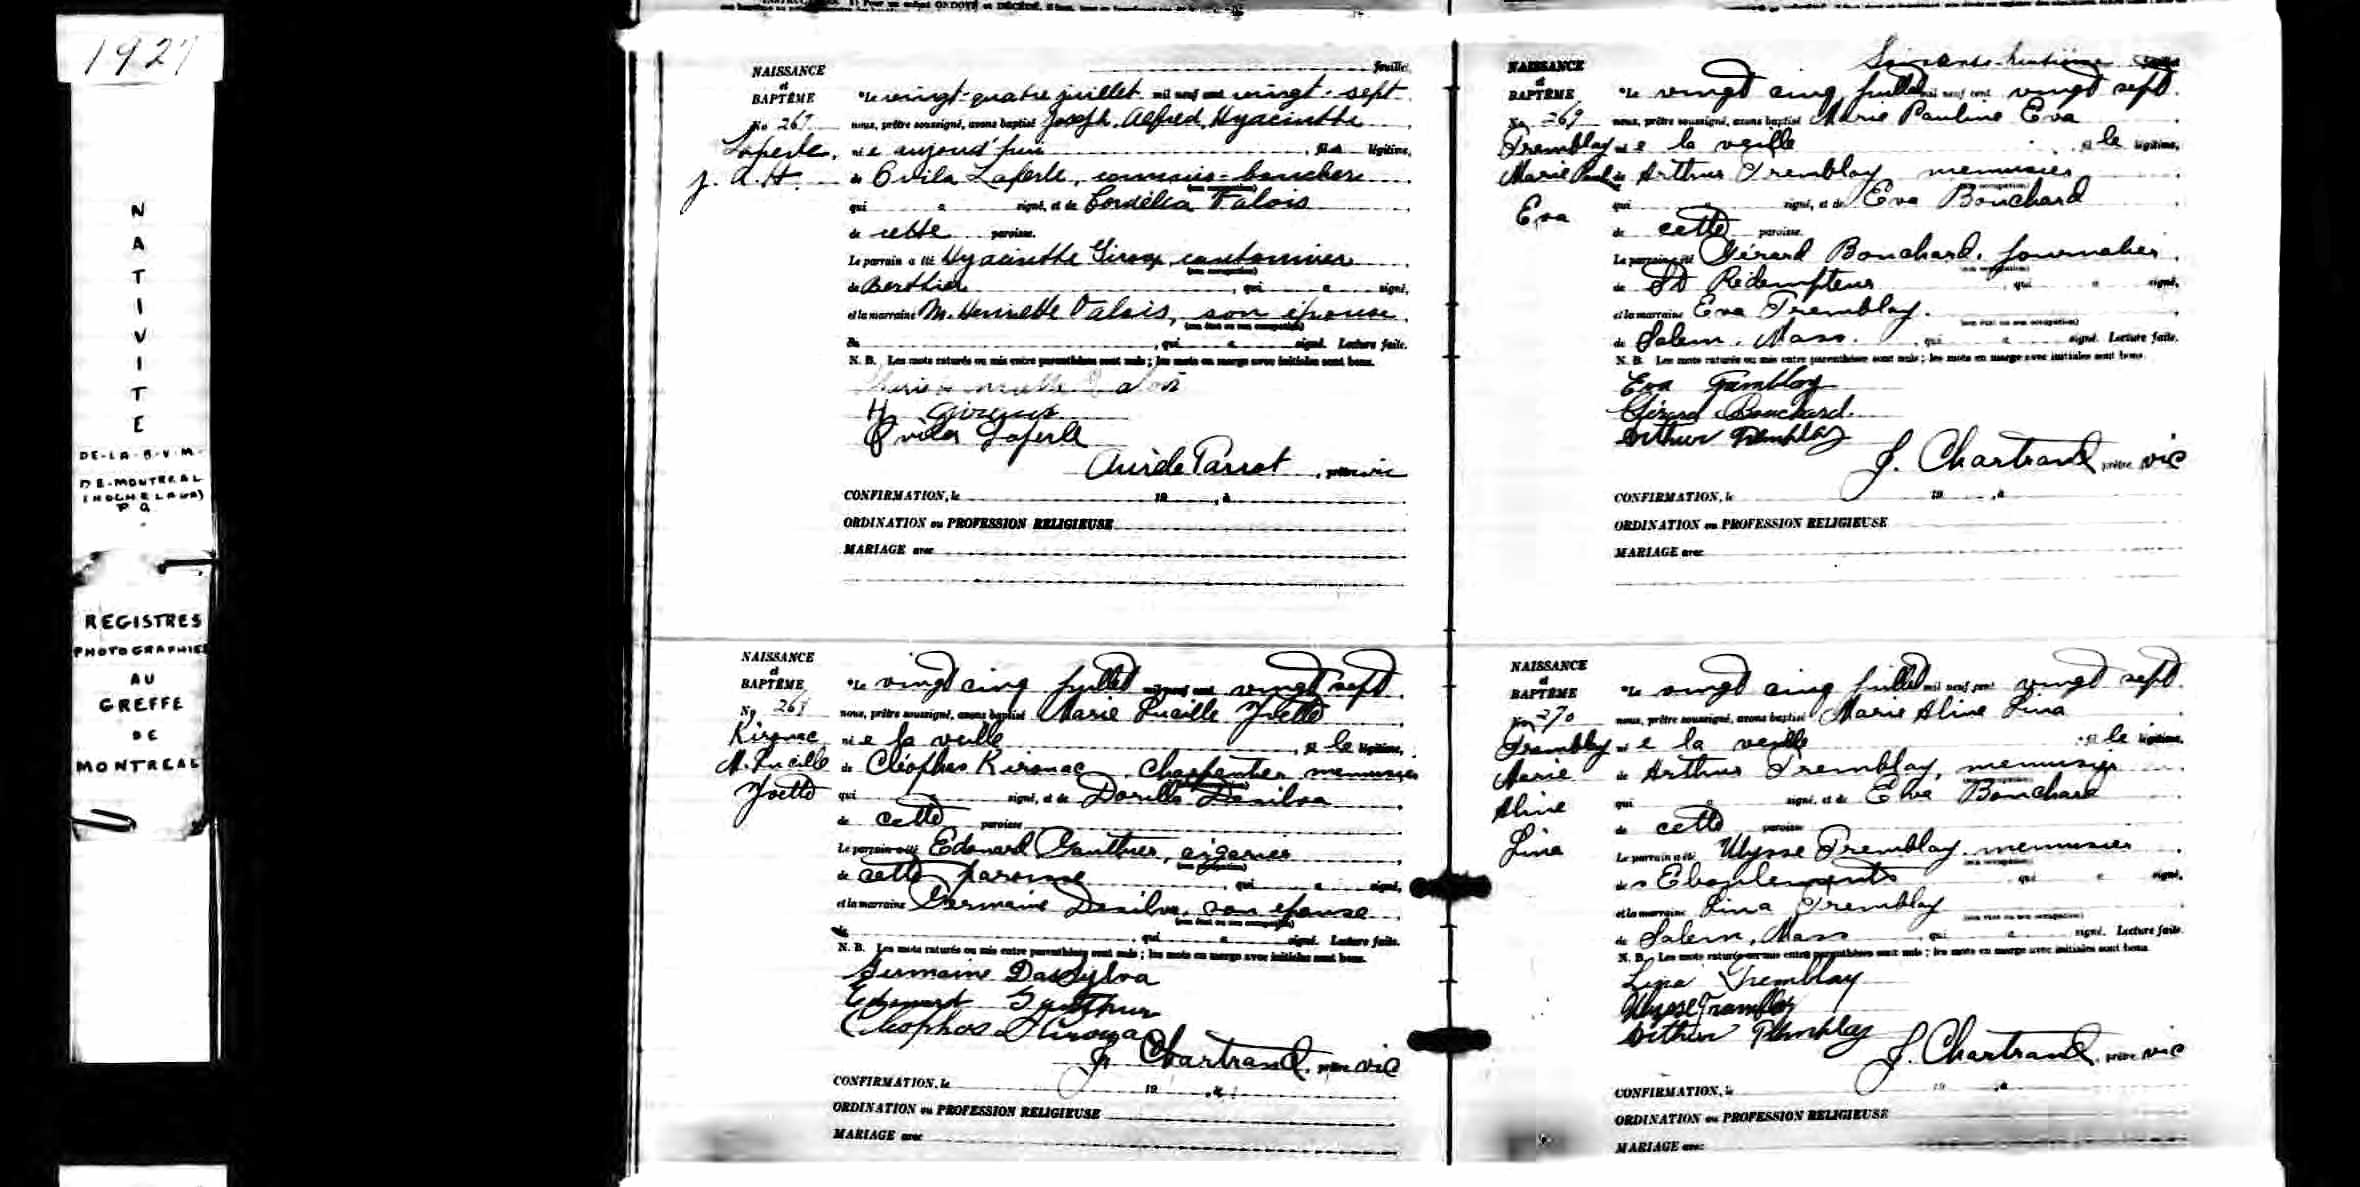 1927
NATIVITE
DE-LA-B-V-M-
DE-MONTREAL
(HOCHELAGA)
P Q
REGISTRES
PHOTOGRAPHIES
AU
GREFFE
DE
MONTREAL
NAISSANCE
et
BAPTÊME
No 267
Laperle,
J. A. H.
feuillet
Le vingt-quatre juillet mil neuf cent vingt-sept
nous, prêtre soussigné, avons baptisé Joseph, Alfred, Hyacinthe
né aujourd'hui, fils légitime,
de Ovila Laperle, commis-boucher
(son occupation)
qui a signé, et de Cordélia Valois
de cette paroisse.
Le parrain a été Hyacinthe Giroux, cantonnier
(son occupation)
de Berthier, qui a signé,
et la marraine M. Henriette Valois, son épouse
(son état ou son occupation)
de , qui a signé. Lecture faite.
N. B. Les mots raturés ou mis entre parenthèses sont nuls; les mots en marge avec initiales sont bons.
Marie Henriette Valois
H. Giroux
Ovila Laperle
Parrot, prêtre vic
CONFIRMATION, le 19 , à
ORDINATION ou PROFESSION RELIGIEUSE
MARIAGE avec
NAISSANCE
et
BAPTÊME
No 268
Kirouac
M. Lucille
Yvette
Le vingt cinq juillet mil neuf cent vingt sept
nous, prêtre soussigné, avons baptisé Marie Lucille Yvette
née la veille, fille légitime,
de Cléophas Kirouac, charpentier menuisier
(son occupation)
qui a signé, et de Dasilva
de cette paroisse
Le parrain a été Edouard Gauthier, cigarier
(son occupation)
de cette paroisse, qui a signé,
et la marraine Germaine Dasilva, son épouse
(son état ou son occupation)
de , qui a signé. Lecture faite.
N. B. Les mots raturés ou mis entre parenthèses sont nuls; les mots en marge avec initiales sont bons.
Germaine DasSylva
Edouard Gauthier
Cléophas Kirouac
J. Chartrand, prêtre vic
CONFIRMATION, le 19 , à
ORDINATION ou PROFESSION RELIGIEUSE
MARIAGE avec
Soixante-huitième feuillet
NAISSANCE
et
BAPTÊME
No 269
Tremblay
Marie Paul
Eva
Le vingt cinq juillet mil neuf cent vingt sept
nous, prêtre soussigné, avons baptisé Marie Pauline Eva
née la veille, fille légitime,
de Arthur Tremblay menuisier
(son occupation)
qui a signé, et de Eva Bouchard
de cette paroisse.
Le parrain a été Gérard Bouchard, journalier
(son occupation)
de St Rédempteur qui a signé,
et la marraine Eva Tremblay
(son état ou son occupation)
de Salem, Mass. , qui a signé. Lecture faite.
N. B. Les mots raturés ou mis entre parenthèses sont nuls; les mots en marge avec initiales sont bons.
Eva Tremblay
Gérard Bouchard
Arthur Tremblay
J. Chartrand, prêtre vic
CONFIRMATION, le 19 , à
ORDINATION ou PROFESSION RELIGIEUSE
MARIAGE avec
NAISSANCE
et
BAPTÊME
No 270
Tremblay
Marie
Aline
Lina
Le vingt cinq juillet mil neuf cent vingt sept
nous, prêtre soussigné, avons baptisé Marie Aline Lina
née la veille fille légitime,
de Arthur Tremblay, menuisier
(son occupation)
qui a signé, et de Eva Bouchard
de cette paroisse
Le parrain a été Ulysse Tremblay, menuisier
(son occupation)
des Eboulements qui a signé,
et la marraine Lina Tremblay
(son état ou son occupation)
de Salem, Mass , qui a signé. Lecture faite.
N. B. Les mots raturés ou mis entre parenthèses sont nuls; les mots en marge avec initiales sont bons.
Lina Tremblay
Ulysse Tremblay
Arthur Tremblay
J. Chartrand, prêtre vic
CONFIRMATION, le 19 , à
ORDINATION ou PROFESSION RELIGIEUSE
MARIAGE avec